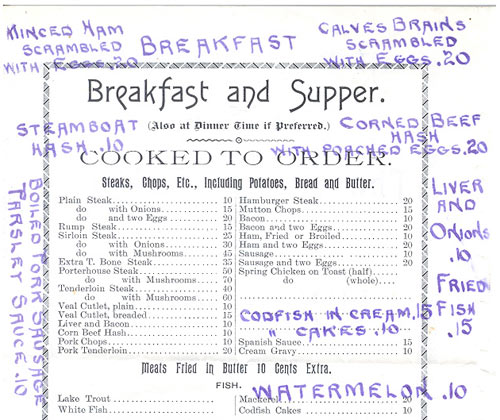 MINCED HAM
SCRAMBLED
WITH EGGS .20
BREAKFAST
CALVES BRAINS
SCRAMBLED
WITH EGGS .20
Breakfast and Supper.
STEAMBOAT
HASH .10
(Also at Dinner Time if Preferred.)
CORNED BEEF
HASH
WITH POACHED EGGS .20
COOKED TO ORDER.
Steaks, Chops, Etc., Including Potatoes, Bread and Butter.
BOILED PORK SAUSAGE
PARSLEY SAUCE .10
Plain Steak 10
do with Onions 15
do and two Eggs 20
Rump Steak 15
Sirloin Steak 25
do with Onions 30
do with Mushrooms 45
Extra T. Bone Steak 35
Porterhouse Steak 50
do with Mushrooms 70
Tenderloin Steak
do with Mushrooms 60
Veal Cutlet, plain 10
Veal Cutlet, breaded 15
Liver and Bacon 10
Corn Beef Hash 10
Pork Chops 10
Pork Tenderloin 20
Hamburger Steak 20
Mutton Chops 15
Bacon 10
Bacon and two Eggs 20
Ham, Fried or Broiled 10
Ham and two Eggs 20
Sausage 10
Sausage and two Eggs 20
Spring Chicken on Toast (half)
do (whole)
CODFISH IN CREAM .15
" CAKES .10
Spanish Sauce 15
Cream Gravy 10
LIVER
AND
ONIONS
.10
FRIED
FISH
.15
Meats Fried in Butter 10 Cents Extra.
FISH.
WATERMELON .10
Lake Trout
White Fish
Mackerel 20
Codfish Cakes 10